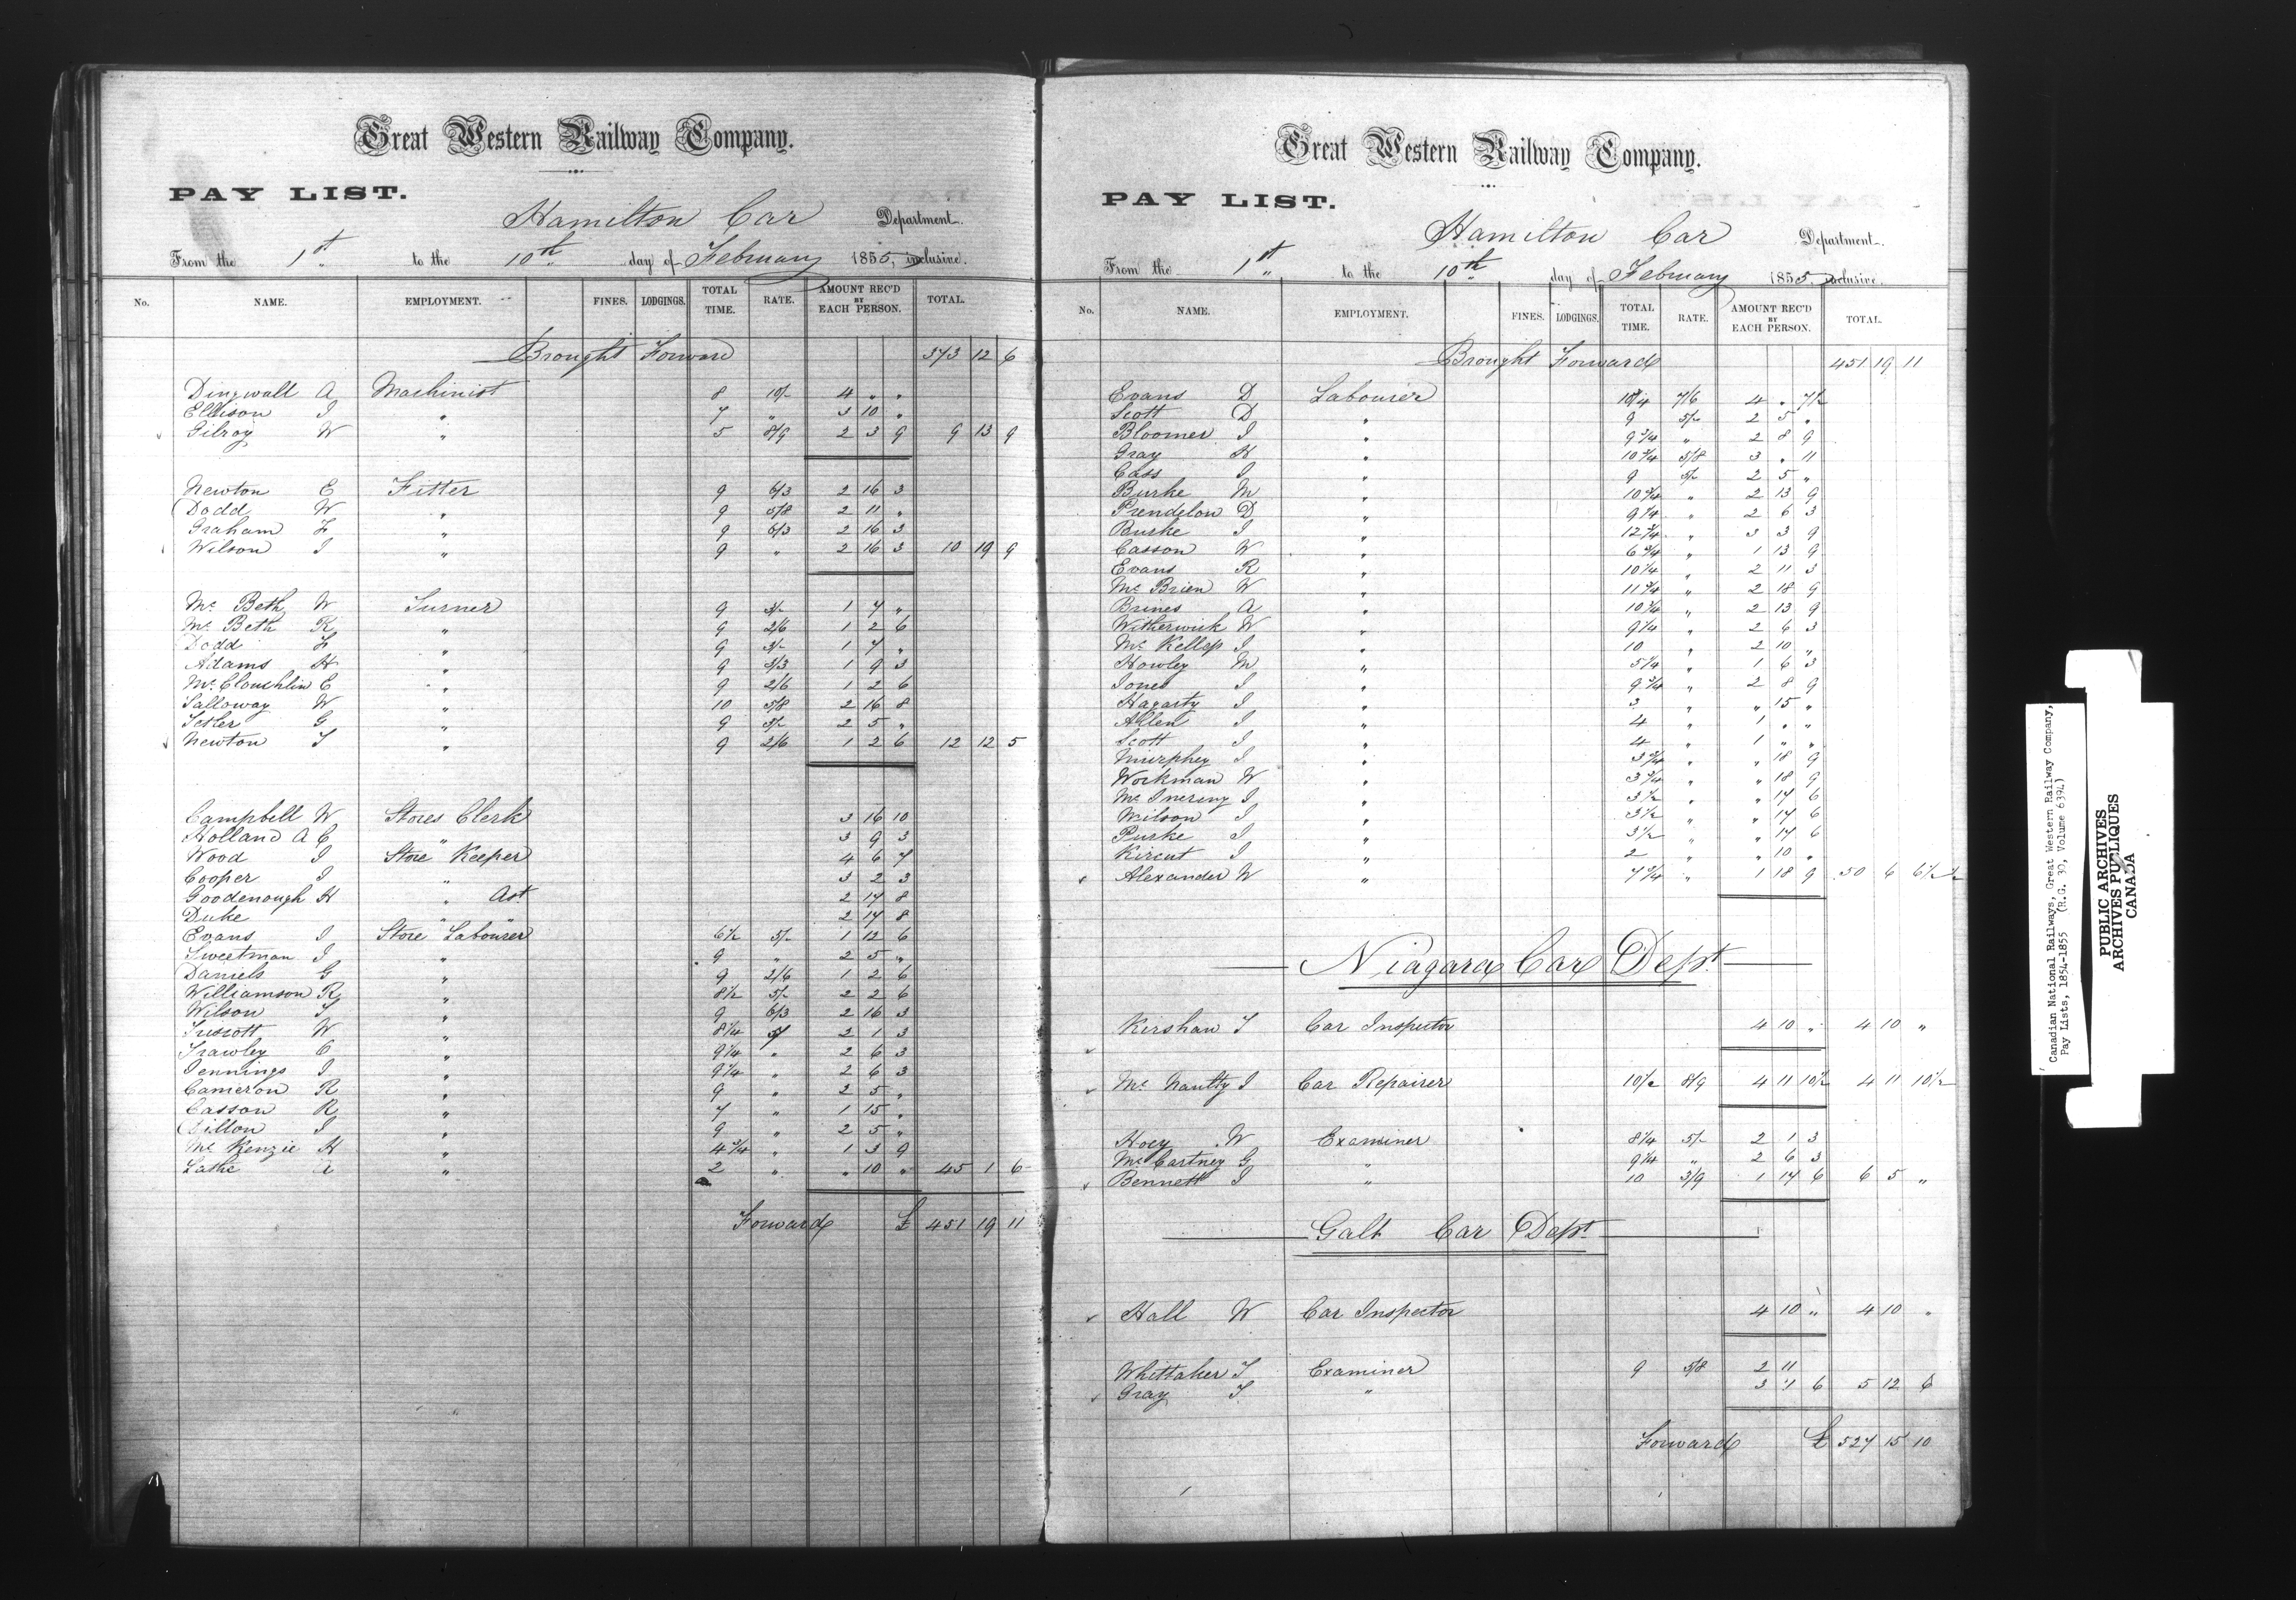 Great Western Railway Company.
PAY LIST.
Hamilton Car Department.
From the 1st to the 10th day of February 1855, inclusive.
No. NAME. EMPLOYMENT. FINES. LODGINGS. TOTAL TIME. RATE. AMOUNT REC'D BY EACH PERSON. TOTAL.
Brought Forward 373 12 6
Dingwall A Machinist 8 10/- 4 " "
Ellison J " 7 " 3 10 "
Gilroy W " 5 8/9 2 3 9 9 13 9
Newton E Fitter 9 6/3 2 16 3
Dodd W " 9 5/8 2 11 "
Graham F " 9 6/3 2 16 3
Wilson J " 9 " 2 16 3 10 19 9
Mc Beth W Turner 9 3/- 1 7 "
Mc Beth R " 9 2/6 1 2 6
Dodd F " 9 3/- 1 7 "
Adams H " 9 3/3 1 9 3
Mc Clouchlin E " 9 2/6 1 2 6
Salloway W " 10 5/8 2 16 8
G " 9 5/- 2 5 "
Newton T " 9 2/6 1 2 6 12 12 5
Campbell W Stores Clerk 3 16 10
Holland A C " 3 9 3
Wood J Store Keeper 4 6 7
Cooper J " 3 2 3
Goodenough H " Ast 2 17 8
Duke " " 2 17 8
Evans J Store Labourer 6 1/2 5/- 1 12 6
Sweetman J " 9 " 2 5 "
Daniels G " 9 2/6 1 2 6
Williamson R " 8 1/2 5/- 2 2 6
Wilson T " 9 6/3 2 16 3
Truscott W " 8 1/4 5/ 2 1 3
Trawley C " 9 1/4 " 2 6 3
Jennings J " 9 1/4 " 2 6 3
Cameron R " 9 " 2 5 "
Casson R " 7 " 1 15 "
Dillon J " 9 " 2 5 "
Mc Kenzie K " 4 3/4 " 1 3 9
Laske A " 2 " " 10 " 45 1 6
Forward £ 451 19 11
Great Western Railway Company.
PAY LIST.
Hamilton Car Department.
From the 1st to the 10th day of February 1855, inclusive.
No. NAME. EMPLOYMENT. FINES. LODGINGS. TOTAL TIME. RATE. AMOUNT REC'D BY EACH PERSON. TOTAL.
Brought Forward 451 19 11
Evans D Labourer 10 3/4 7/6 4 " 7 1/2
Scott D " 9 5/- 2 5 "
Bloomer J " 9 3/4 " 2 8 9
Gray H " 10 3/4 5/8 3 " 11
Cass J " 9 5/- 2 5 "
Burke M " 10 3/4 " 2 13 9
Prendelon D " 9 1/4 " 2 6 3
Burke J " 12 3/4 " 3 3 9
Casson W " 6 3/4 " 1 13 9
Evans R " 10 1/4 " 2 11 3
Mc Brien W " 11 3/4 " 2 18 9
Brines A " 10 3/4 " 2 13 9
Witherwick W " 9 1/4 " 2 6 3
Mc Kellop J " 10 " 2 10 "
Howley M " 5 1/4 " 1 6 3
Jones J " 9 3/4 " 2 8 9
Hagarty J " 3 " " 15 "
Allen J " 4 " 1 " "
Scott J " 4 " 1 " "
Murphey J " 3 3/4 " " 18 9
Workman W " 3 3/4 " " 18 9
Mc Inereny J " 3 1/2 " " 17 6
Wilson J " 3 1/2 " " 17 6
Purke J " 3 1/2 " " 17 6
Kircut J " 2 " " 10 "
Alexander W " 7 3/4 " 1 18 9 50 6 6 1/2
Niagara Car Dept
Kershaw T Car Inspector 4 10 " 4 10 "
Mc Naulty J Car Repairer 10 1/2 8/9 4 11 10 1/2 4 11 10 1/2
Hoey W Examiner 8 1/4 5/- 2 1 3
Mc Cartney G " 9 1/4 " 2 6 3
Bennett J " 10 3/9 1 17 6 6 5 "
Galt Car Dept
Hall W Car Inspector 4 10 " 4 10 "
Whittaker T Examiner 9 5/8 2 11
Gray T " 3 1 6 5 12 6
Forward £ 527 15 10
Canadian National Railways, Great Western Railway Company,
Pay Lists, 1854-1855 (R.G. 30, Volume 6394)
PUBLIC ARCHIVES
ARCHIVES PUBLIQUES
CANADA